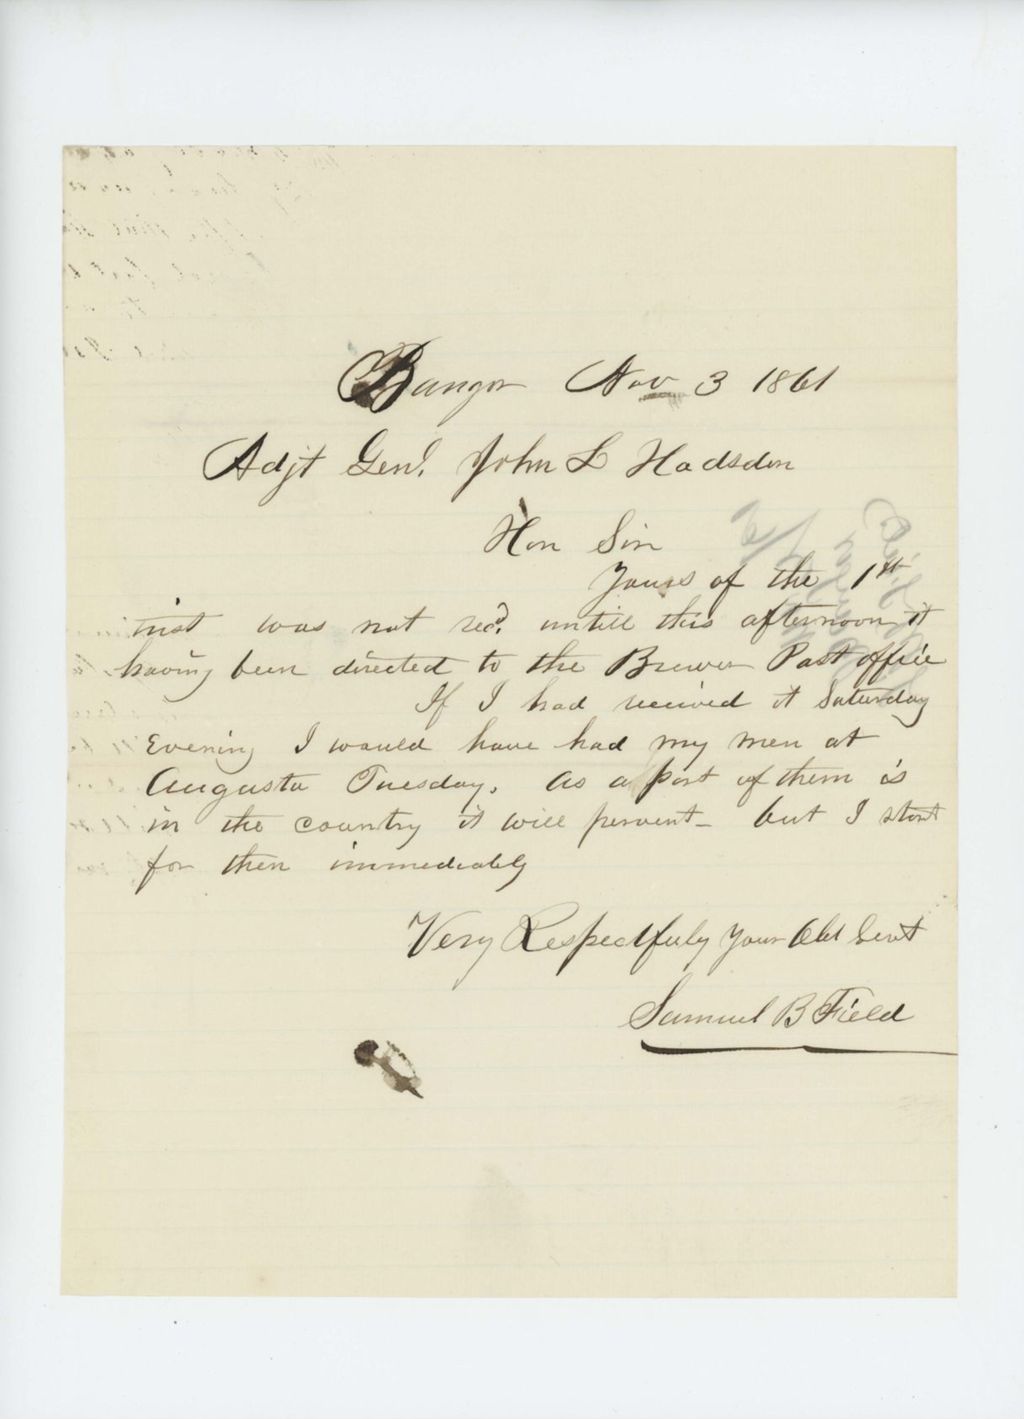 Bangor Nov 3 1861
Adjt Genl. John L Hadsdon
Hon Sir
Yours of the 1st
inst was not recd. untill this afternoon it
having been directed to the Brewer Post office
If I had received it Saturday
Evening I would have had my men at
Augusta Tuesday. as a part of them is
in the country it will pervent - but I start
for then immediately
Very Respectfuly Your Obt Servt
Samuel B Field